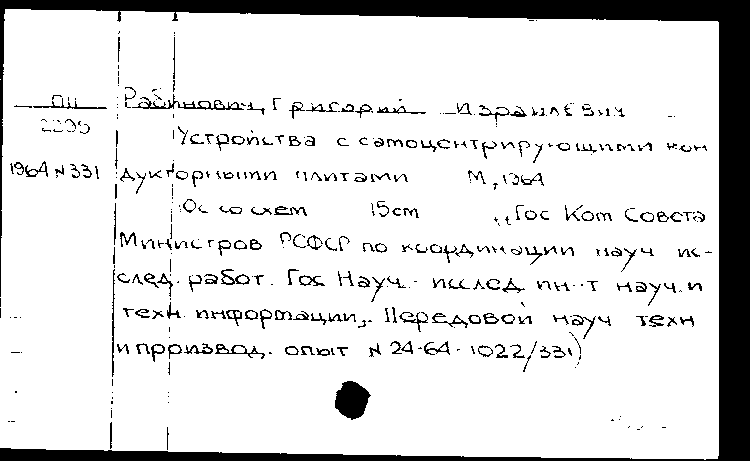 ПП Рабинович, Григорий Израилевич
2295 Устройства с самоцентрирующими кон
1964 N 331 дукторными плитами М, 1964
с схем 15см „Гос Ком Совета
Министров РСФСР по координации науч ис-
след. работ. Гос Науч.- исслед ин-т науч. и
техн информации, Передовой науч техн
и производ. опыт N 24-64-1022/331)